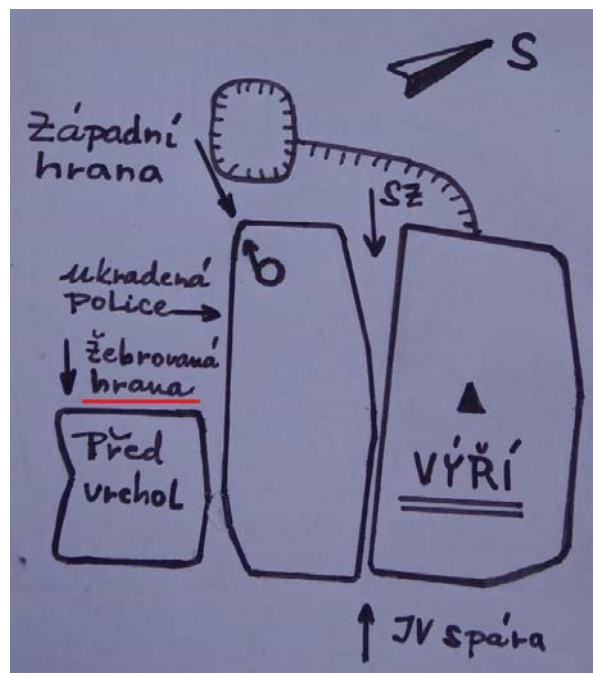 S
Západní
hrana
SZ
ukradená
Police
žebrovaná
hrana
Před
vrchol
VÝŘÍ
JV spára